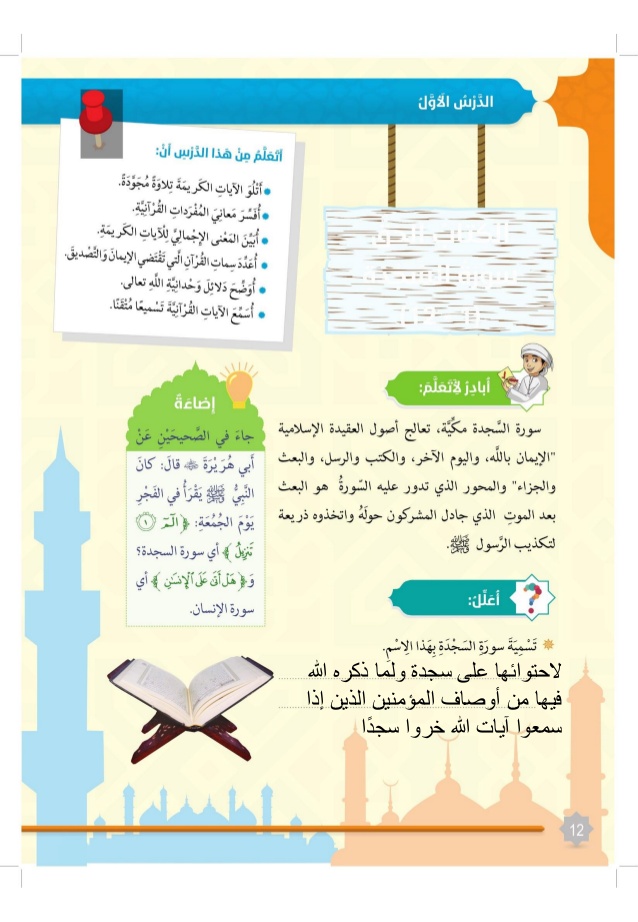 الدَّرْسُ الْأَوَّلُ
أَتَعَلَّمُ مِنْ هَذا الدَّرْسِ أَنْ:
أَتْلُوَ الآياتِ الكَريمَةَ تِلاوَةً مُجَوَّدَةً.
أُفَسِّرَ مَعانِيَ المُفْرَداتِ القُرْآنِيَّةِ.
أُبَيِّنَ المَعْنى الإِجْمالِيَّ لِلْآياتِ الكَريمَةِ.
أُعَدِّدَ سِماتِ القُرْآنِ الَّتي تَقْتَضي الإيمانَ وَالتَّصْديقَ.
أُوَضِّحَ دَلائِلَ وَحْدانِيَّةِ اللَّهِ تعالى.
أُسَمِّعَ الآياتِ القُرْآنِيَّةَ تَسْميعًا مُتْقَنًا.
أُبادِرُ لِأَتَعَلَّمَ:
سورة السَّجدة مكِّيَّة، تعالج أصول العقيدة الإسلامية
"الإيمان باللَّه، واليوم الآخر، والكتب والرسل، والبعث
والجزاء" والمحور الذي تدور عليه السّورةُ هو البعث
بعد الموتِ الذي جادل المشركون حولَهُ واتخذوه ذريعة
لتكذيب الرَّسول ﷺ.
إضاءَةٌ
جاءَ في الصَّحيحَيْنِ عَنْ
أَبي هُرَيْرَةَ ﵁ قالَ: كانَ
النَّبِيُّ ﷺ يَقْرَأُ في الفَجْرِ
يَوْمَ الجُمُعَةِ: ﴿ الٓمٓ ١
تَنزِيلُ ﴾ أي سورة السجدة؟
وَ﴿ هَلْ أَتَىٰ عَلَى ٱلْإِنسَٰنِ ﴾ أي
سورة الإنسان.
أُعَلِّلُ:
تَسْمِيَةَ سورَةِ السَّجْدَةِ بِهَذا الِاسْمِ.
لاحتوائها على سجدة ولما ذكره الله
فيها من أوصاف المؤمنين الذين إذا
سمعوا آيات الله خروا سجدًا
12